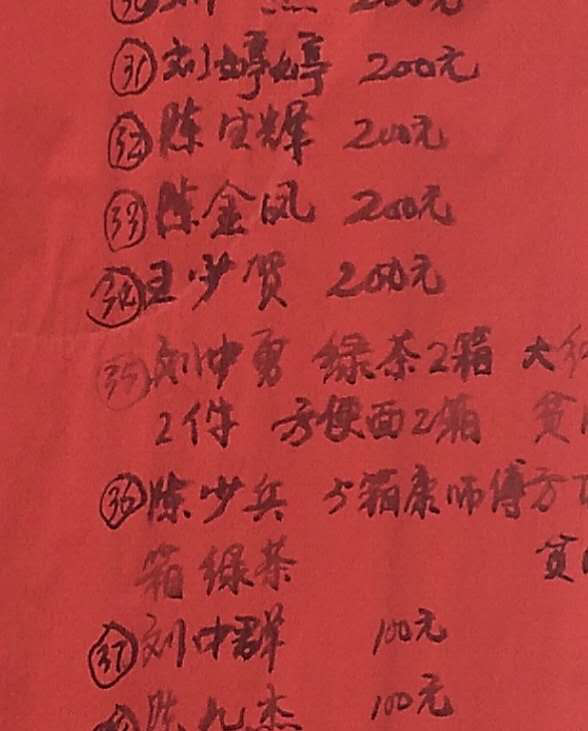 ㉛刘婷婷 200元
㉜陈宝辉 200元
㉝陈金凤 200元
㉞王少贺 200元
㉟刘中勇 绿茶2箱 大
2件 方便面2箱
㊱陈少兵 5箱康师傅方
箱绿茶
㊲刘中群 100元
陈九杰 100元